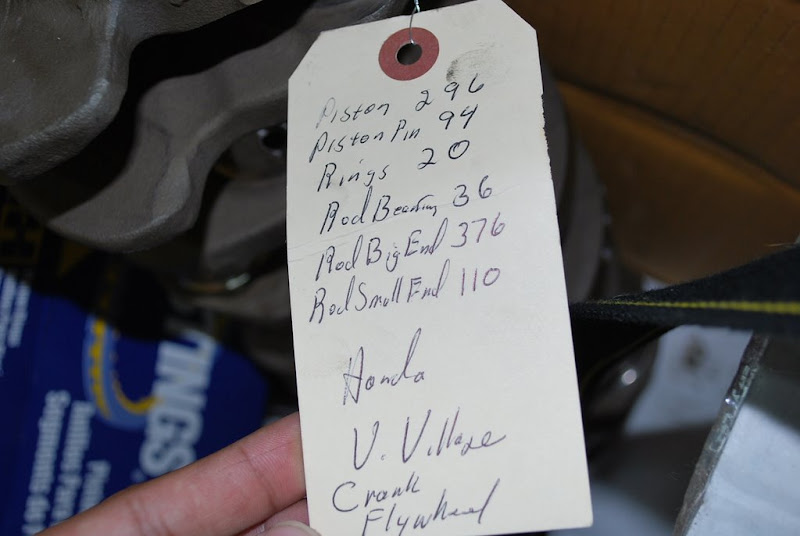 Piston 296
Piston Pin 94
Rings 20
Rod Bearing 36
Rod Big End 376
Rod Small End 110
Honda
V. Village
Crank
Flywheel
INGS